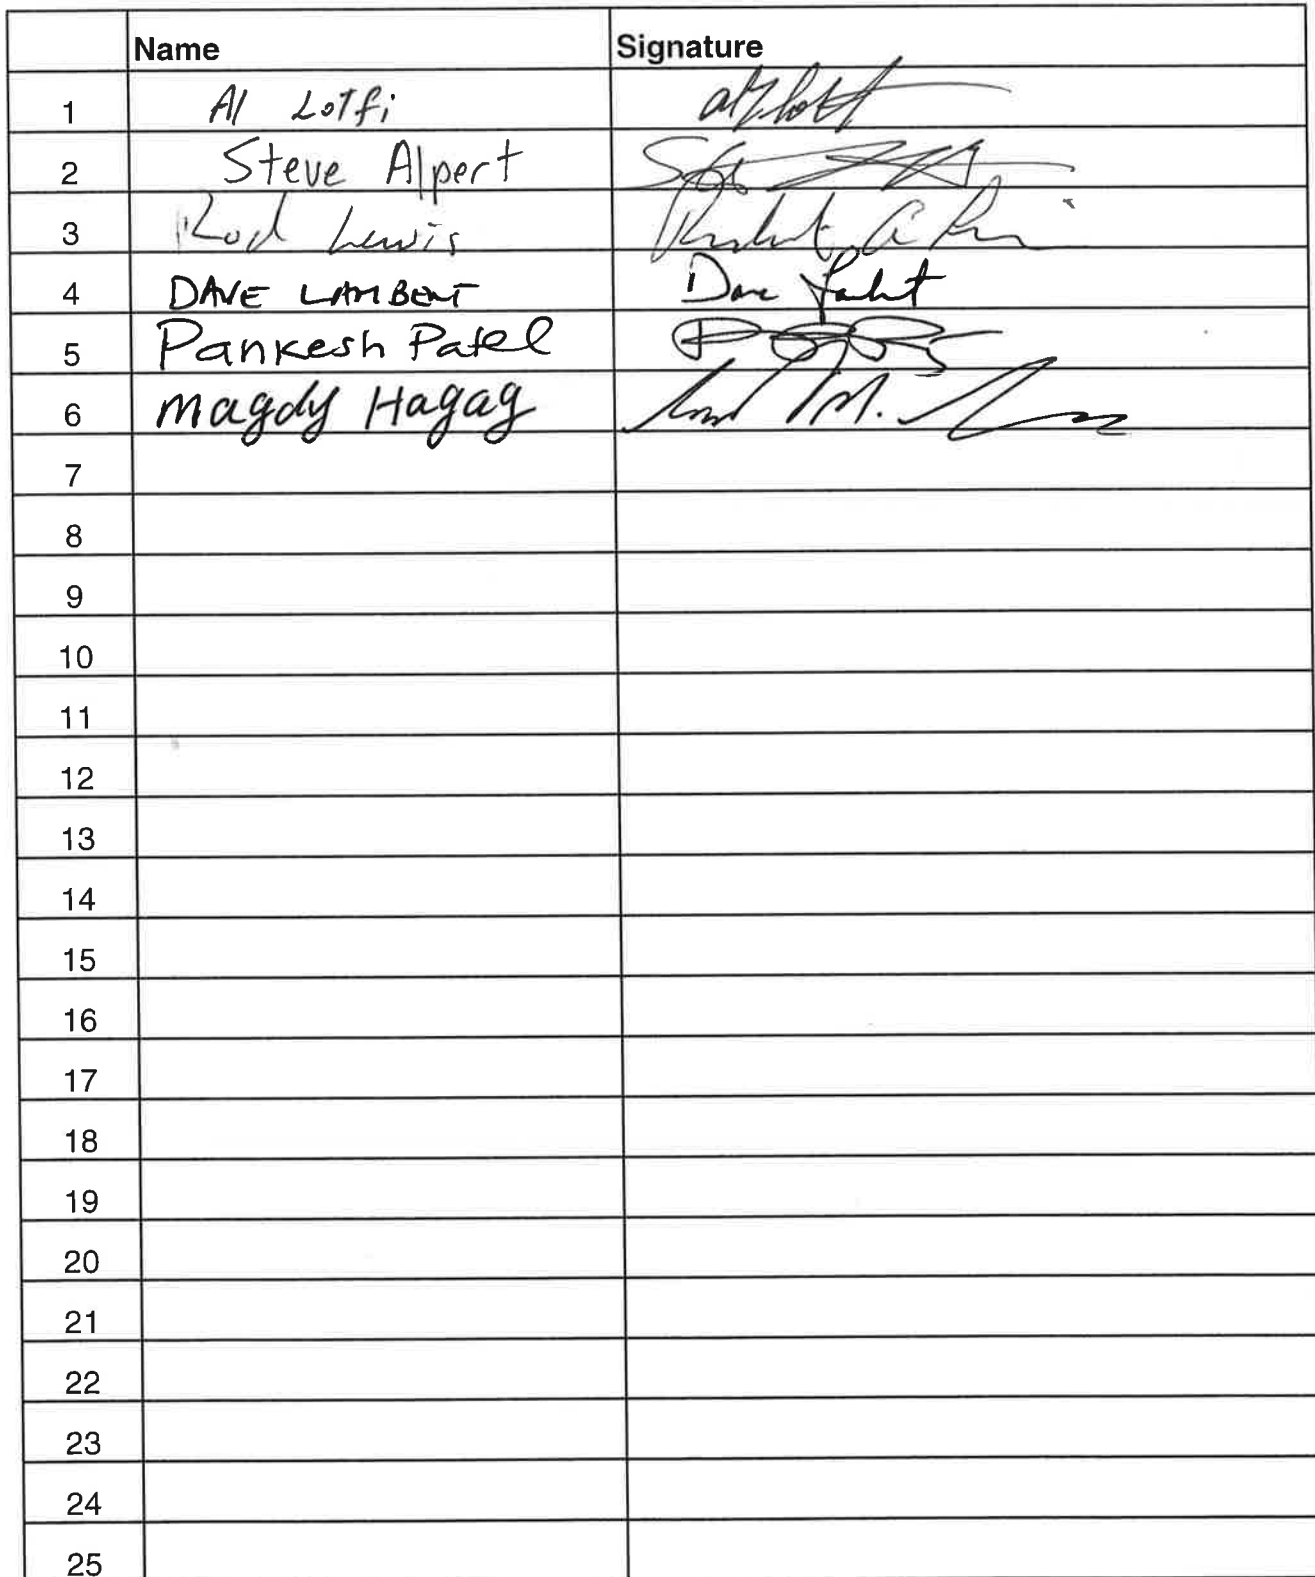 Name Signature
1 Al Lotfi
2 Steve Alpert
3 Rod Lewis
4 DAVE LAMBERT Dave
5 Pankesh Patel
6 Magdy Hagag
7
8
9
10
11
12
13
14
15
16
17
18
19
20
21
22
23
24
25